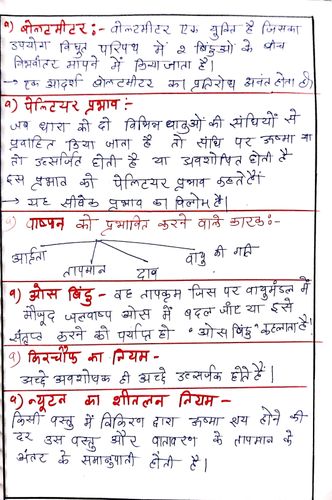 १) वोल्टमीटर:- वोल्टमीटर एक युक्ति है जिसका
उपयोग विधुत परिपथ में २ बिंदुओं के बीच
विभवांतर मापने में किया जाता है।
→ एक आदर्श वोल्टमीटर का प्रतिरोध अनंत होता है।
१) पेल्टियर प्रभाव :-
जब धारा को दो विभिन्न धातुओं की संधियों से
प्रवाहित किया जाता है तो संधि पर ऊष्मा या
तो उत्सर्जित होती है या अवशोषित होती है
इस प्रभाव को पेल्टियर प्रभाव कहते हैं।
→ यह सीबेक प्रभाव का विलोम है।
१) वाष्पन को प्रभावित करने वाले कारक:-
आर्द्रता तापमान दाब वायु की गति
१) ओस बिंदु - वह तापक्रम जिस पर वायुमंडल में
मौजूद जलवाष्प ओस में बदल जाए या इसे
संतृप्त करने को पर्याप्त हो "ओस बिंदु" कहलाता है।
१) किरचौफ का नियम -
अच्छे अवशोषक ही अच्छे उत्सर्जक होते हैं।
१) न्यूटन का शीतलन नियम -
किसी वस्तु में विकिरण द्वारा ऊष्मा क्षय होने की
दर उस वस्तु और वातावरण के तापमान के
अंतर के समानुपाती होती है।